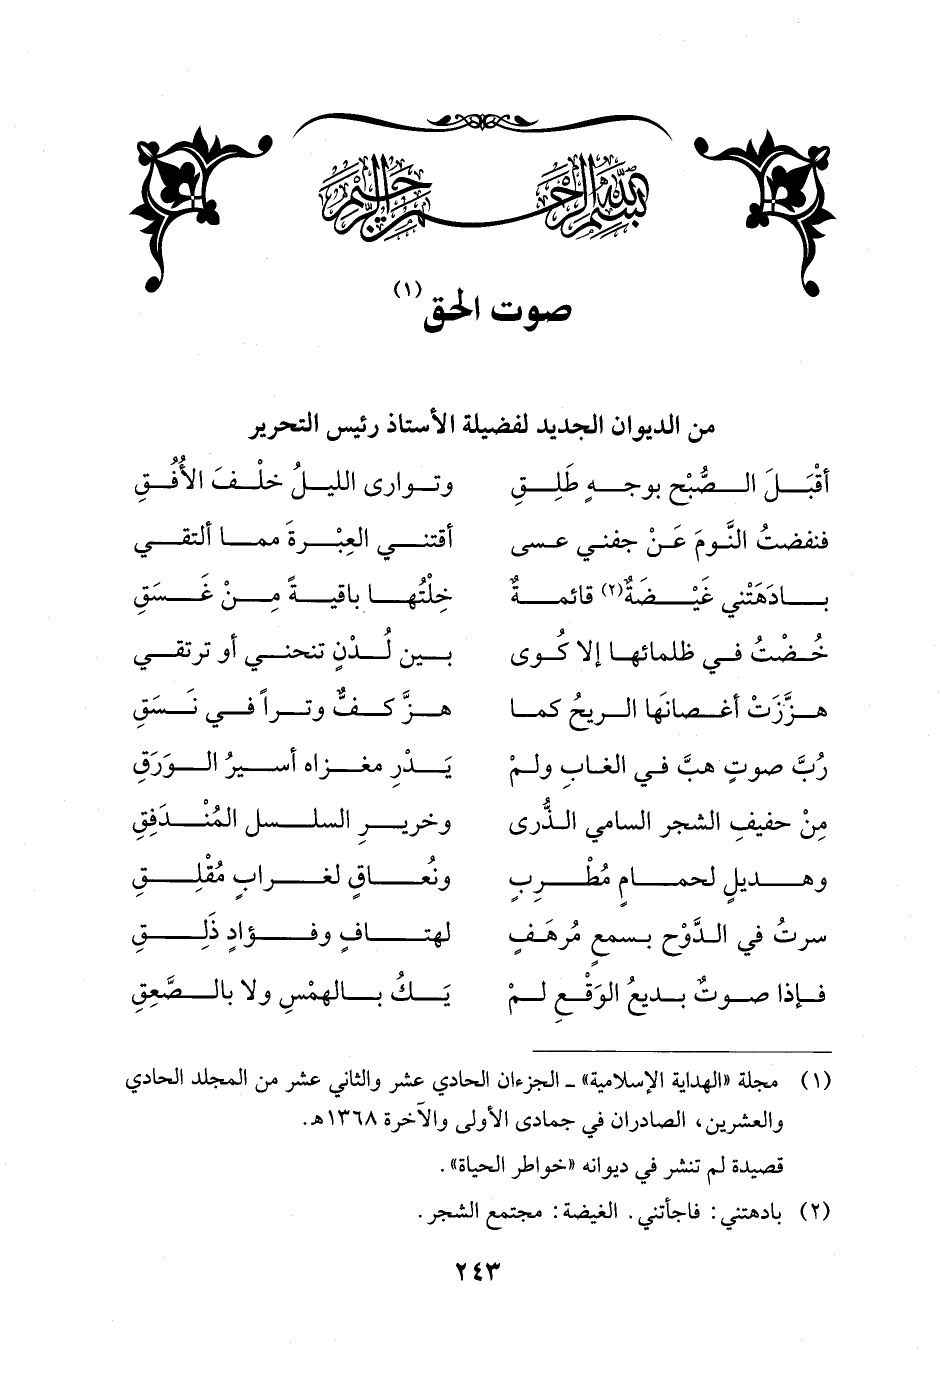 بسم الله الرحمن الرحيم
صوت الحق (١)
من الديوان الجديد لفضيلة الأستاذ رئيس التحرير
أقْبَلَ الصُّبْح بوجهٍ طَلِقِ وتوارى الليلُ خلْفَ الأُفُقِ
فنفضتُ النَّومَ عَنْ جفني عسى أقتني العِبْرةَ مما ألتقي
بادَهَتْني غَيْضَةٌ(٢) قائمةٌ خِلْتُها باقيةً مِنْ غَسَقِ
خُضْتُ في ظلمائها إلا كُوى بين لُدْنٍ تنحني أو ترتقي
هزَّزَتْ أغصانَها الريحُ كما هزَّ كفٌّ وتراً في نَسَقِ
رُبَّ صوتٍ هبَّ في الغابِ ولمْ يَدْرِ مغزاه أسيرُ الوَرَقِ
مِنْ حفيفِ الشجر السامي الذُّرى وخريرِ السلسل المُنْدَفِقِ
وهديلٍ لحمامٍ مُطْرِبٍ ونُعاقٍ لغرابٍ مُقْلِقِ
سرتُ في الدَّوْح بسمعٍ مُرهَفٍ لهتافٍ وفؤادٍ ذَلِقِ
فإذا صوتٌ بديعُ الوَقْعِ لمْ يَكُ بالهمْسِ ولا بالصَّعِقِ
(١) مجلة «الهداية الإسلامية» ـ الجزءان الحادي عشر والثاني عشر من المجلد الحادي
والعشرين، الصادران في جمادى الأولى والآخرة ١٣٦٨هـ.
قصيدة لم تنشر في ديوانه «خواطر الحياة».
(٢) بادهتني: فاجأتني. الغيضة: مجتمع الشجر.
٢٤٣